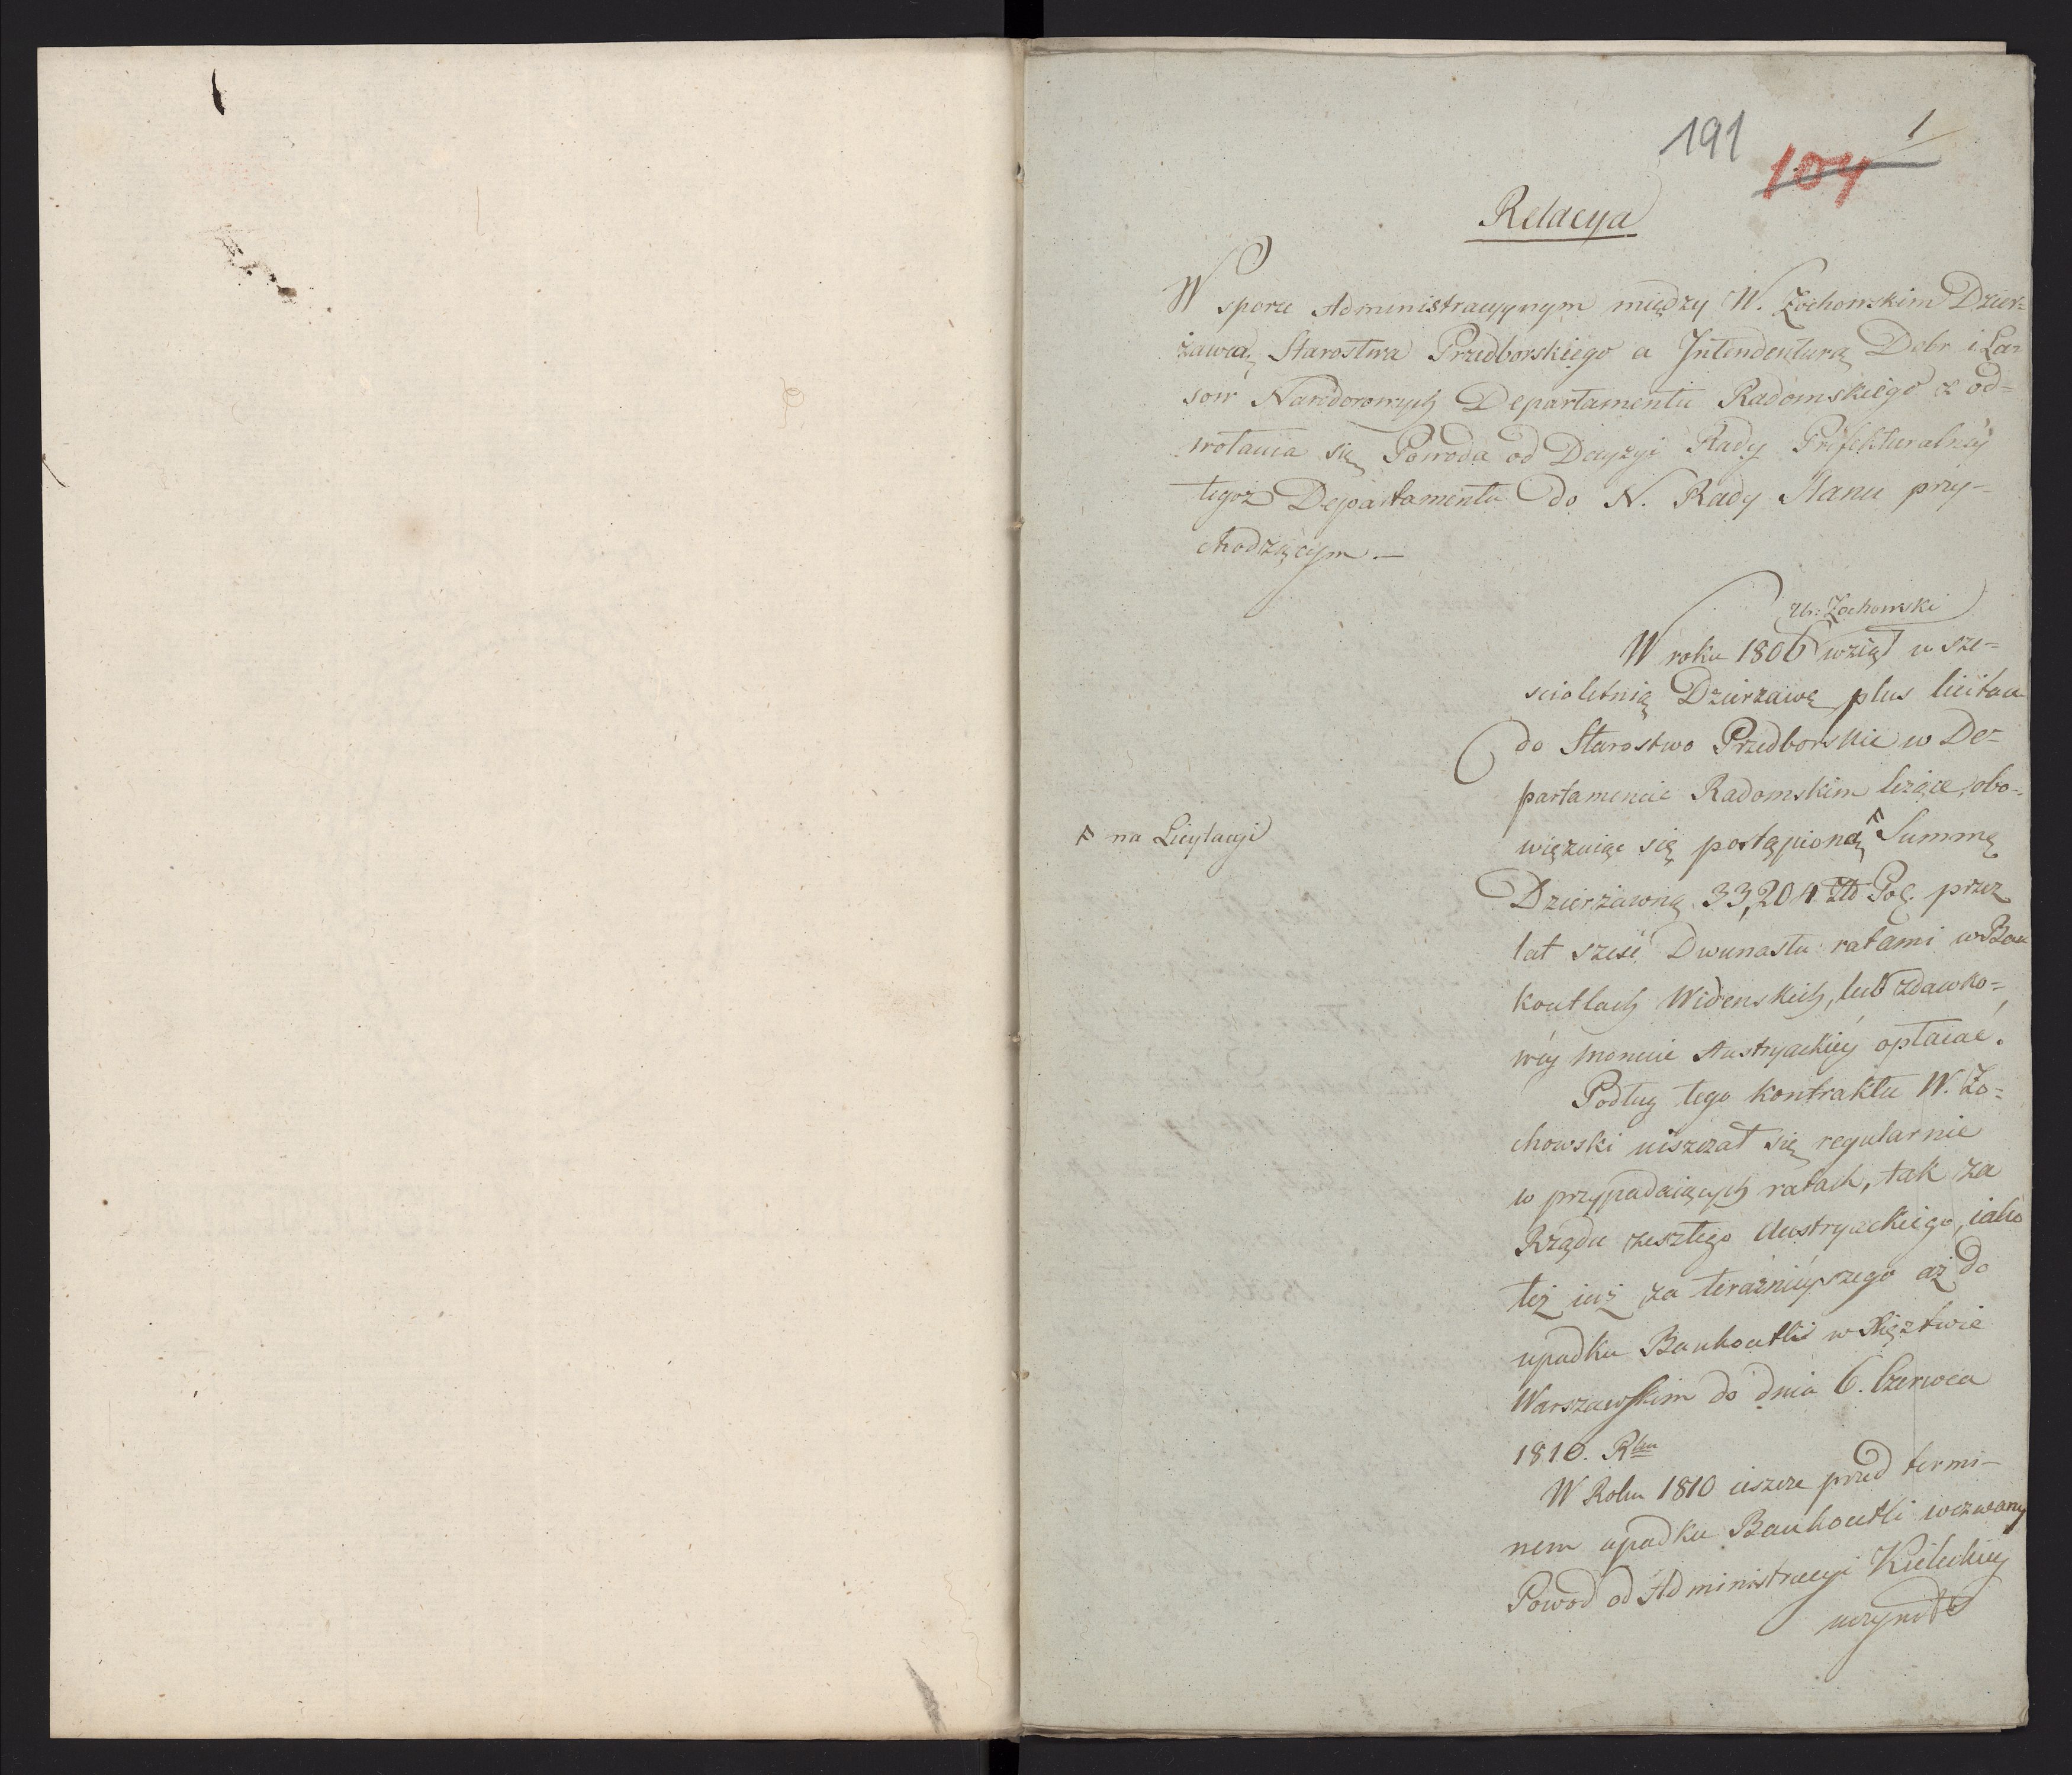 191
1
104
Relacya
W sporze Administracyynym między W. Żochowskim Dzier=
żawcą Starostwa Przedborskiego a Jntendenturą Dobr i La=
sow Narodorowych Departamentu Radomskiego z od=
wołania się Powoda od Decyzyi Rady Prefekturalnéy
tegoż Departamentu do N. Rady Stanu przy-
chodzącym. —
Ur: Żochowski
W roku 1806 wziął w sze=
scioletnią Dzierzawę plus licitan
do Starostwo Przedborskie w De=
partamencie Radomskim leżące, obo=
więzuiąc się postąpioną Ꟶ Summę
Ꟶ na Licytacyi
Dzierżawną 33,204 Złd Pol. przez
lat sześć Dwunastu ratami w Ban
koutlach Widenskich, lub zdawko=
wéy monecie Austryackiéy opłacać.
Podług tego kontraktu W. Żo=
chowski uiszczał się regularnie
w przypadaiących ratach, tak za
Rządu zeszłego Austryackiego, iako
też iuż za teraznieyszego aż do
upadku Bankoutli w Xięztwie
Warszawskim do dnia 6. Czerwca
1810. Rku
W Roku 1810 ieszcze przed termi-
nem upadku Bankoutli wezwany
Powod od Administracyi Kieleckiey
uczynił